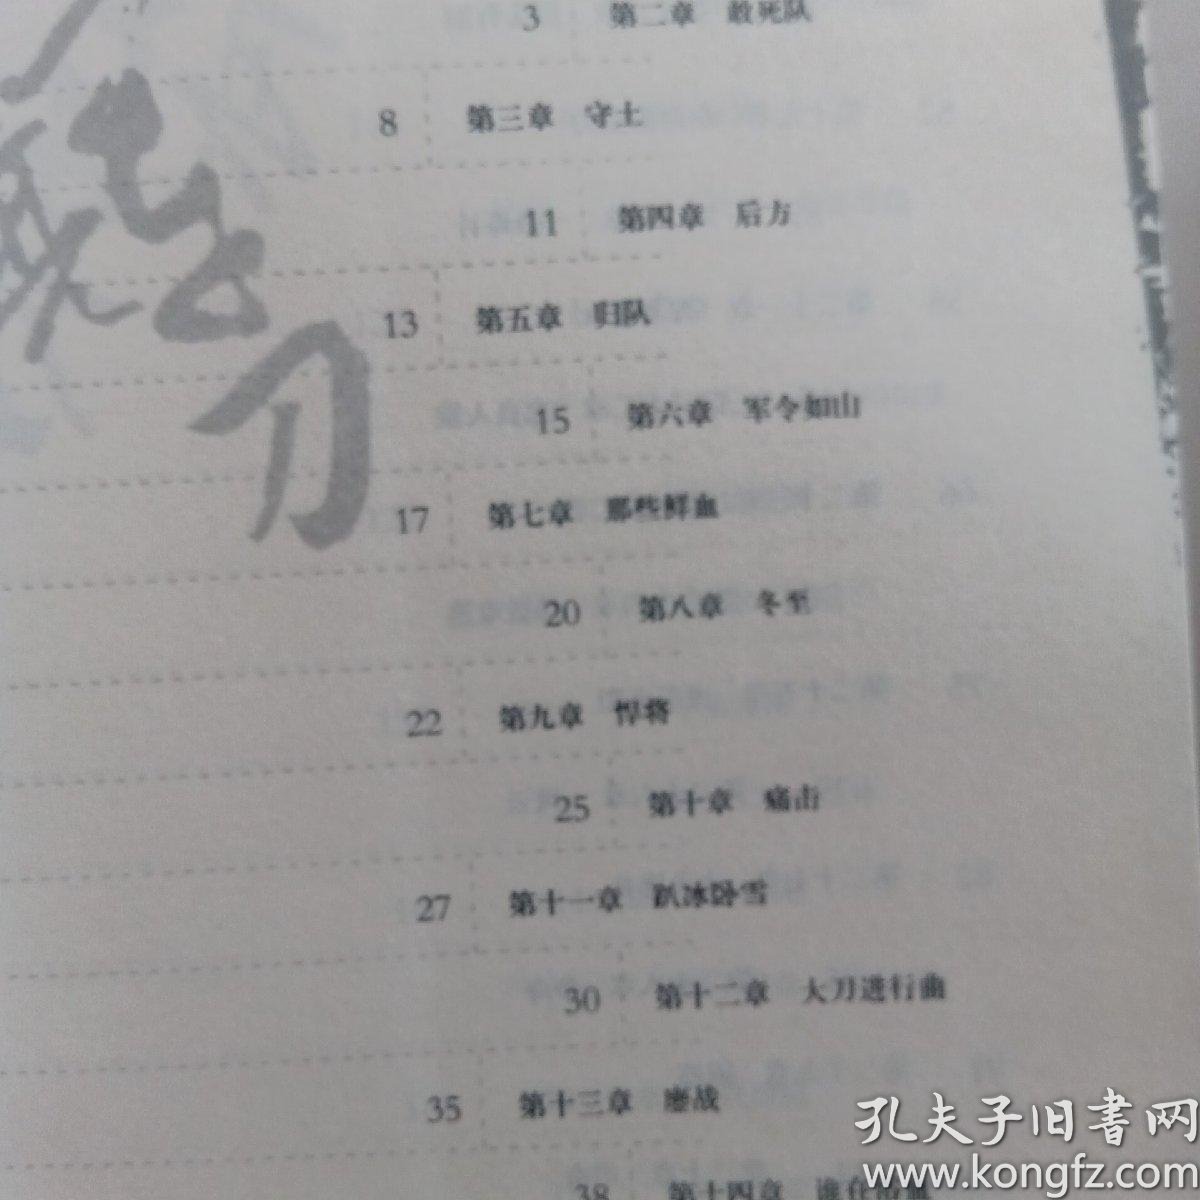 3 第二章 敢死队
8 第三章 守土
11 第四章 后方
13 第五章 归队
15 第六章 军令如山
17 第七章 那些鲜血
20 第八章 冬至
22 第九章 悍将
25 第十章 痛击
27 第十一章 趴冰卧雪
30 第十二章 大刀进行曲
35 第十三章 鏖战
38 第十四章
刀
孔夫子旧書网
www.kongfz.com